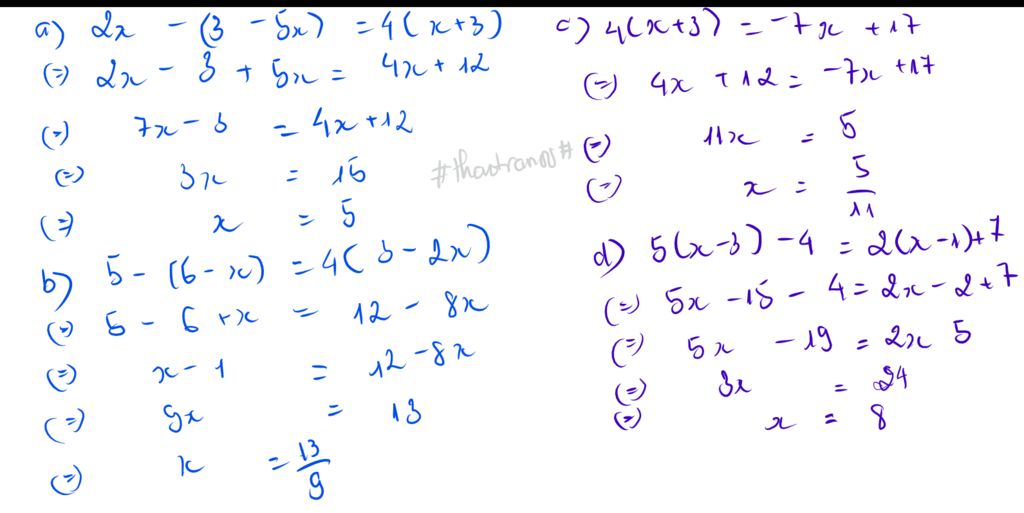 a) 2x - (3 - 5x) = 4(x+3)
(=) 2x - 3 + 5x = 4x + 12
(=) 7x - 3 = 4x + 12
(=) 3x = 15
(=) x = 5
b) 5 - (6 - x) = 4(3 - 2x)
(=) 5 - 6 + x = 12 - 8x
(=) x - 1 = 12 - 8x
(=) 9x = 13
(=) x = 13/9
#thaotran01#
c) 4(x+3) = -7x + 17
(=) 4x + 12 = -7x + 17
(=) 11x = 5
(=) x = 5/11
d) 5(x-3) - 4 = 2(x-1)+7
(=) 5x - 15 - 4 = 2x - 2 + 7
(=) 5x - 19 = 2x 5
(=) 3x = 24
(=) x = 8